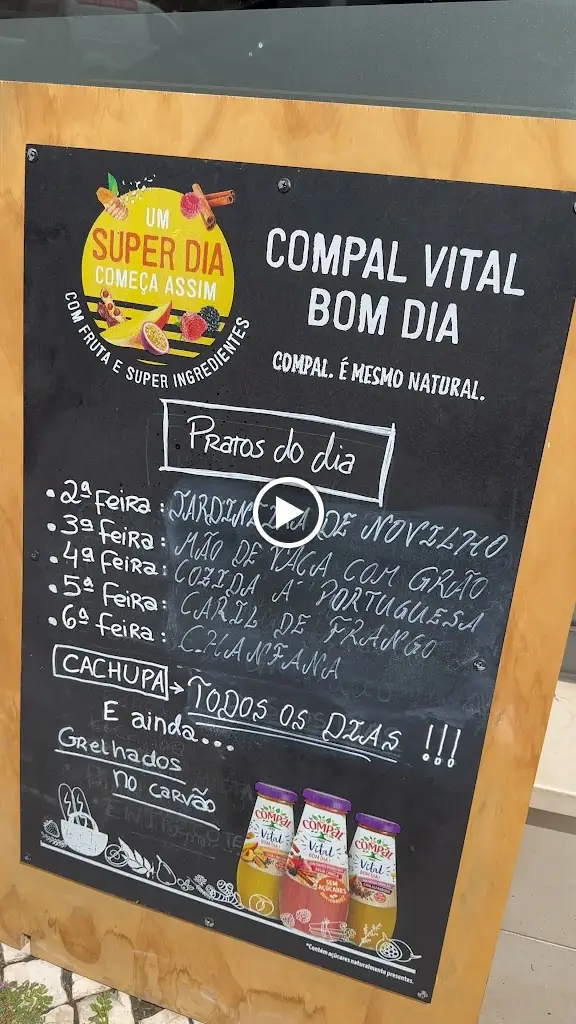 UM
SUPER DIA
COMEÇA ASSIM
COM FRUTA E SUPER INGREDIENTES
COMPAL VITAL
BOM DIA
COMPAL. É MESMO NATURAL.
Pratos do dia
• 2ª Feira: JARDINEIRA DE NOVILHO
• 3ª Feira: MÃO DE VACA COM GRÃO
• 4ª Feira: COZIDA Á PORTUGUESA
• 5ª Feira: CARIL DE FRANGO
• 6ª Feira: CHANFANA
CACHUPA → TODOS OS DIAS !!!
E ainda....
Grelhados
no carvão
COMPAL Vital BOM DIA!
COMPAL Vital BOM DIA!
SEM AÇÚCARES
COMPAL Vital BOM DIA!
*Contém açúcares naturalmente presentes.